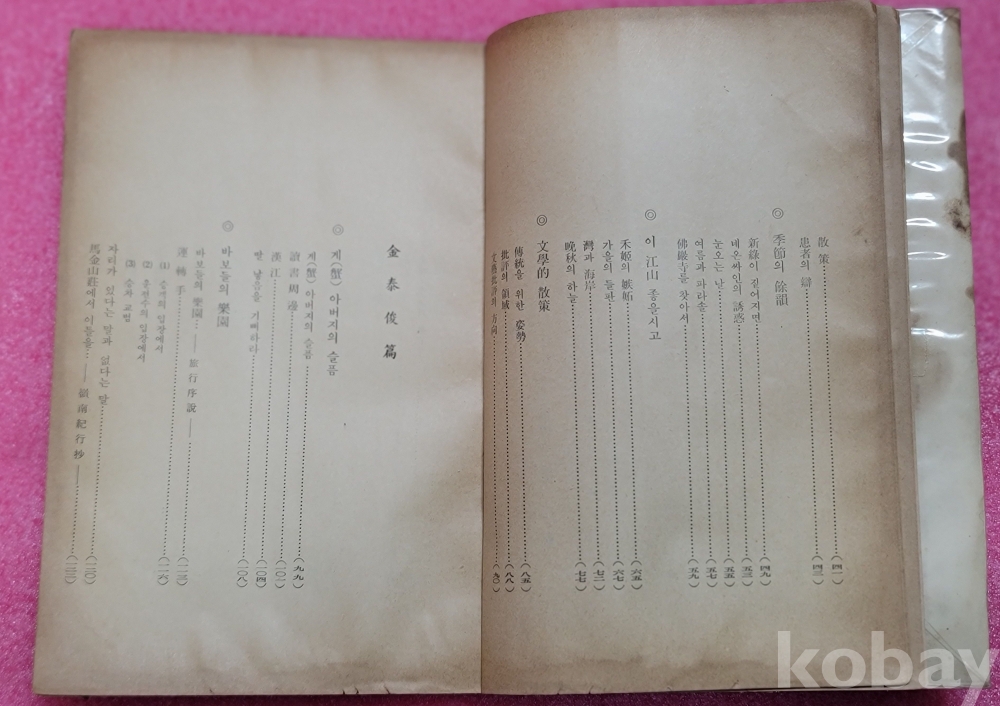 散策……(四一)
患者의 辯……(四三)
◎ 季節의 餘韻
新綠이 짙어지면……(四九)
네온싸인의 誘惑……(五三)
눈오는 날……(五五)
여름과 파라솔……(五七)
佛巖寺를 찾아서……(五九)
◎ 이 江山 좋을시고
禾姬의 嫉妬……(六五)
가을의 들판……(六七)
灣과 海岸……(七二)
晩秋의 하늘……(七七)
◎ 文學的 散策
傳統을 위한 姿勢……(八五)
批評의 領域……(八八)
文藝批評의 方向……(九〇)
金泰俊篇
◎ 게(蟹) 아버지의 슬픔
게(蟹) 아버지의 슬픔……(九九)
讀書周邊……(一〇一)
漢江……(一〇四)
맞 낳음을 기뻐하라……(一〇八)
◎ 바보들의 樂園
바보들의 樂園……──旅行序說──
運轉手……(一一三)
(1) 승객의 입장에서
(2) 운전수의 입장에서……(一一六)
(3) 승화 교범
자리가 있다는 말과 없다는 말……(一二〇)
馬金山莊에서 이틀을……──嶺南紀行抄──……(一二三)
kobay